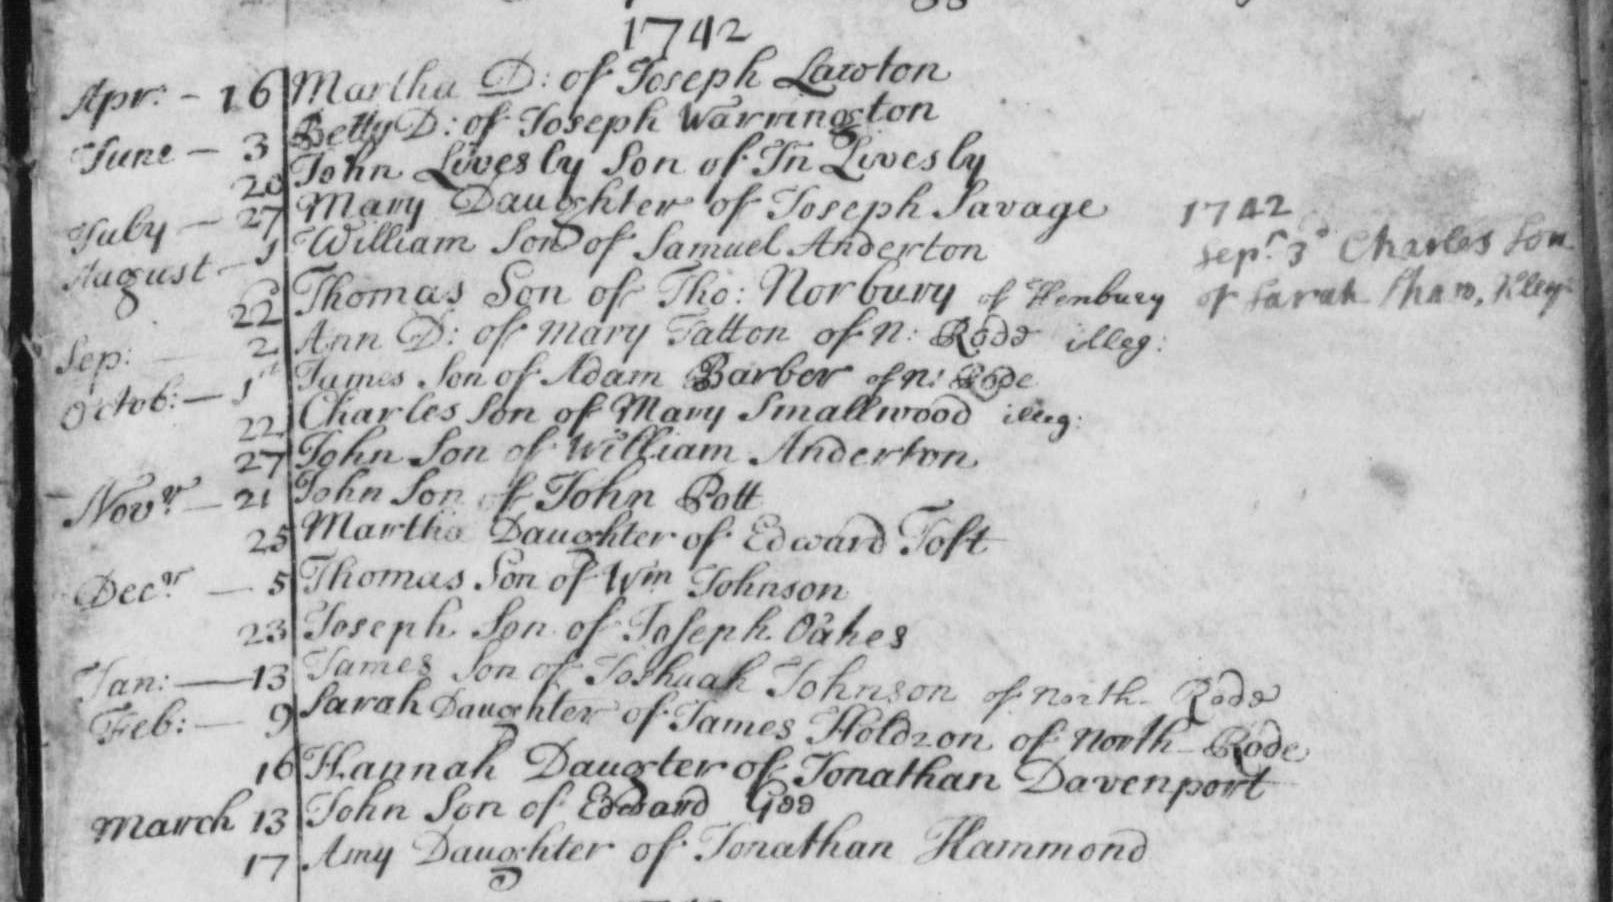 1742
Apr: - 16 Martha D: of Joseph Lawton
June - 3 Betty D: of Joseph Warrington
20 John Livesly Son of Jn Livesly
July - 27 Mary Daughter of Joseph Savage
August - 1 William Son of Samuel Anderton
22 Thomas Son of Tho: Norbury of Henbury
Sep: - 2 Ann D: of Mary Tatton of N: Rode illeg:
Octob: - 1st James Son of Adam Barber of N: Rode
22 Charles Son of Mary Smallwood illeg:
27 John Son of William Anderton
Novr - 21 John Son of John Pott
25 Martha Daughter of Edward Toft
Decr - 5 Thomas Son of Wm Johnson
23 Joseph Son of Joseph Oakes
Jan: - 13 James Son of Joshuah Johnson of North Rode
Feb: - 9 Sarah Daughter of James Holdson of North Rode
16 Hannah Daugter of Jonathan Davenport
March 13 John Son of Edward God
17 Amy Daughter of Jonathan Hammond
1742
Sepr. 3d Charles Son
of Sarah Shaw, Illeg: